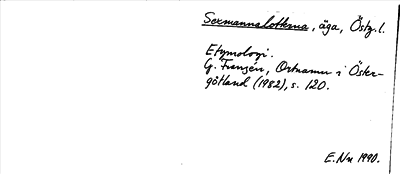 Sexmannalotterna, äga, Östg. l.
Etymologi.
G. Franzén, Ortnamn i Öster-
götland (1982), s. 120.
E. Nn 1990.